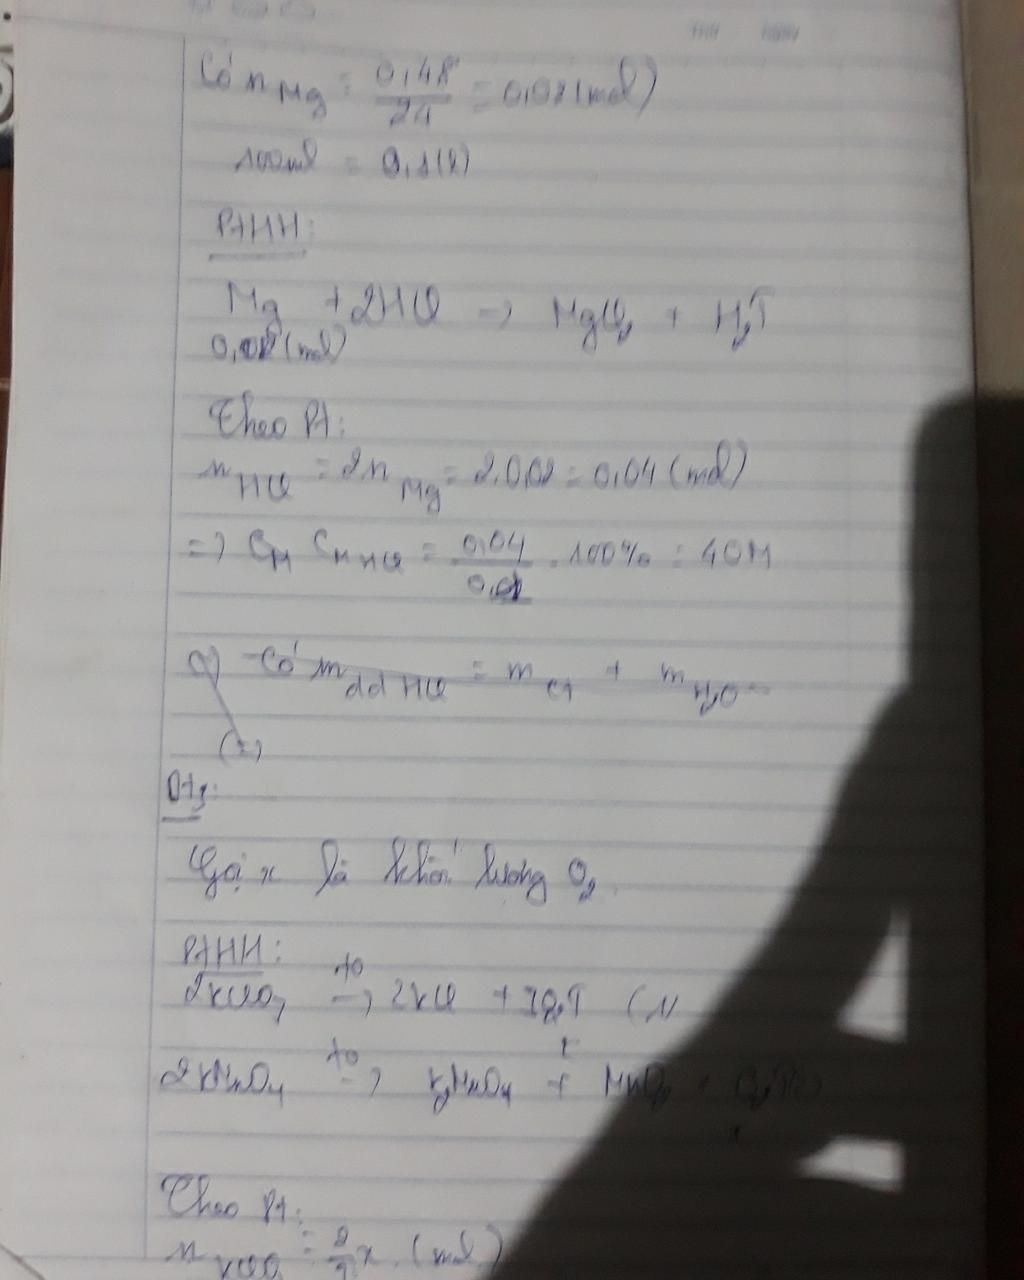 Có n Mg = 0,48/24 = 0,02 (mol)
100ml = 0,1(l)
PTHH:
Mg + 2HCl → MgCl2 + H2↑
0,02 (mol)
Theo Pt:
n HCl = 2n Mg = 2.0,02 = 0,04 (mol)
=) CM CM HCl = 0,04/0,01 . 100% = 40M
- Có m dd HCl = m ct + m H2O
Gọi x là khối lượng O2
PTHH:
2KClO3 to → 2KCl + 3O2↑ (1)
2KMnO4 to → K2MnO4 + MnO2 + O2↑
Theo Pt:
n KClO3 = 2/3x (mol)